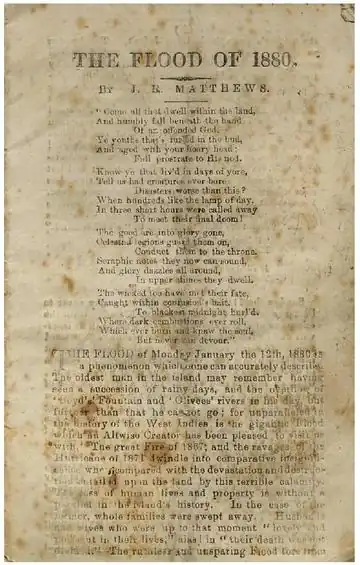 THE FLOOD OF 1880.
BY J. R. MATTHEWS.
"Come all that dwell within the land,
And humbly fall beneath the hand
Of an offended God.
Ye youths that's nursed in the bud,
And aged with your hoary head;
Fall prostrate to His nod.
Know ye that liv'd in days of yore,
Tell us had creatures ever bore
Disasters worse than this?
When hundreds like the lamp of day,
In three short hours were called away
To meet their final doom!
The good are into glory gone,
Celestial legions guard them on,
Conduct them to the throne.
Seraphic notes they now can sound,
And glory dazzles all around,
In upper climes they dwell.
The wicked too have met their fate,
Caught within confusion's bait.
To blackest midnight hurl'd.
Where dark combustions ever roll,
Which ever burn and knaw the soul,
But never can devour."
THE FLOOD of Monday January the 12th, 1880 is
a phenomenon which none can accurately describe
The oldest man in the island may remember having
seen a succession of rainy days, and the
Fountain and Olivees' rivers in his day, but
further than that he cannot go; for unparalleled in
the history of the West Indies is the gigantic Flood
which an Allwise Creator has been pleased to visit
with. "The great Fire of 1867; and the ravages of the
Hurricane of 1871 dwindle into comparative
when compared with the devastation and
upon the land by this terrible calamity.
loss of human lives and property is without a
in the island's history. In the case of the
former, whole families were swept away.
wives who were up to that moment "lovely and
pleasant in their lives," alas! in "their death
The ruthless and unsparing Flood tore from